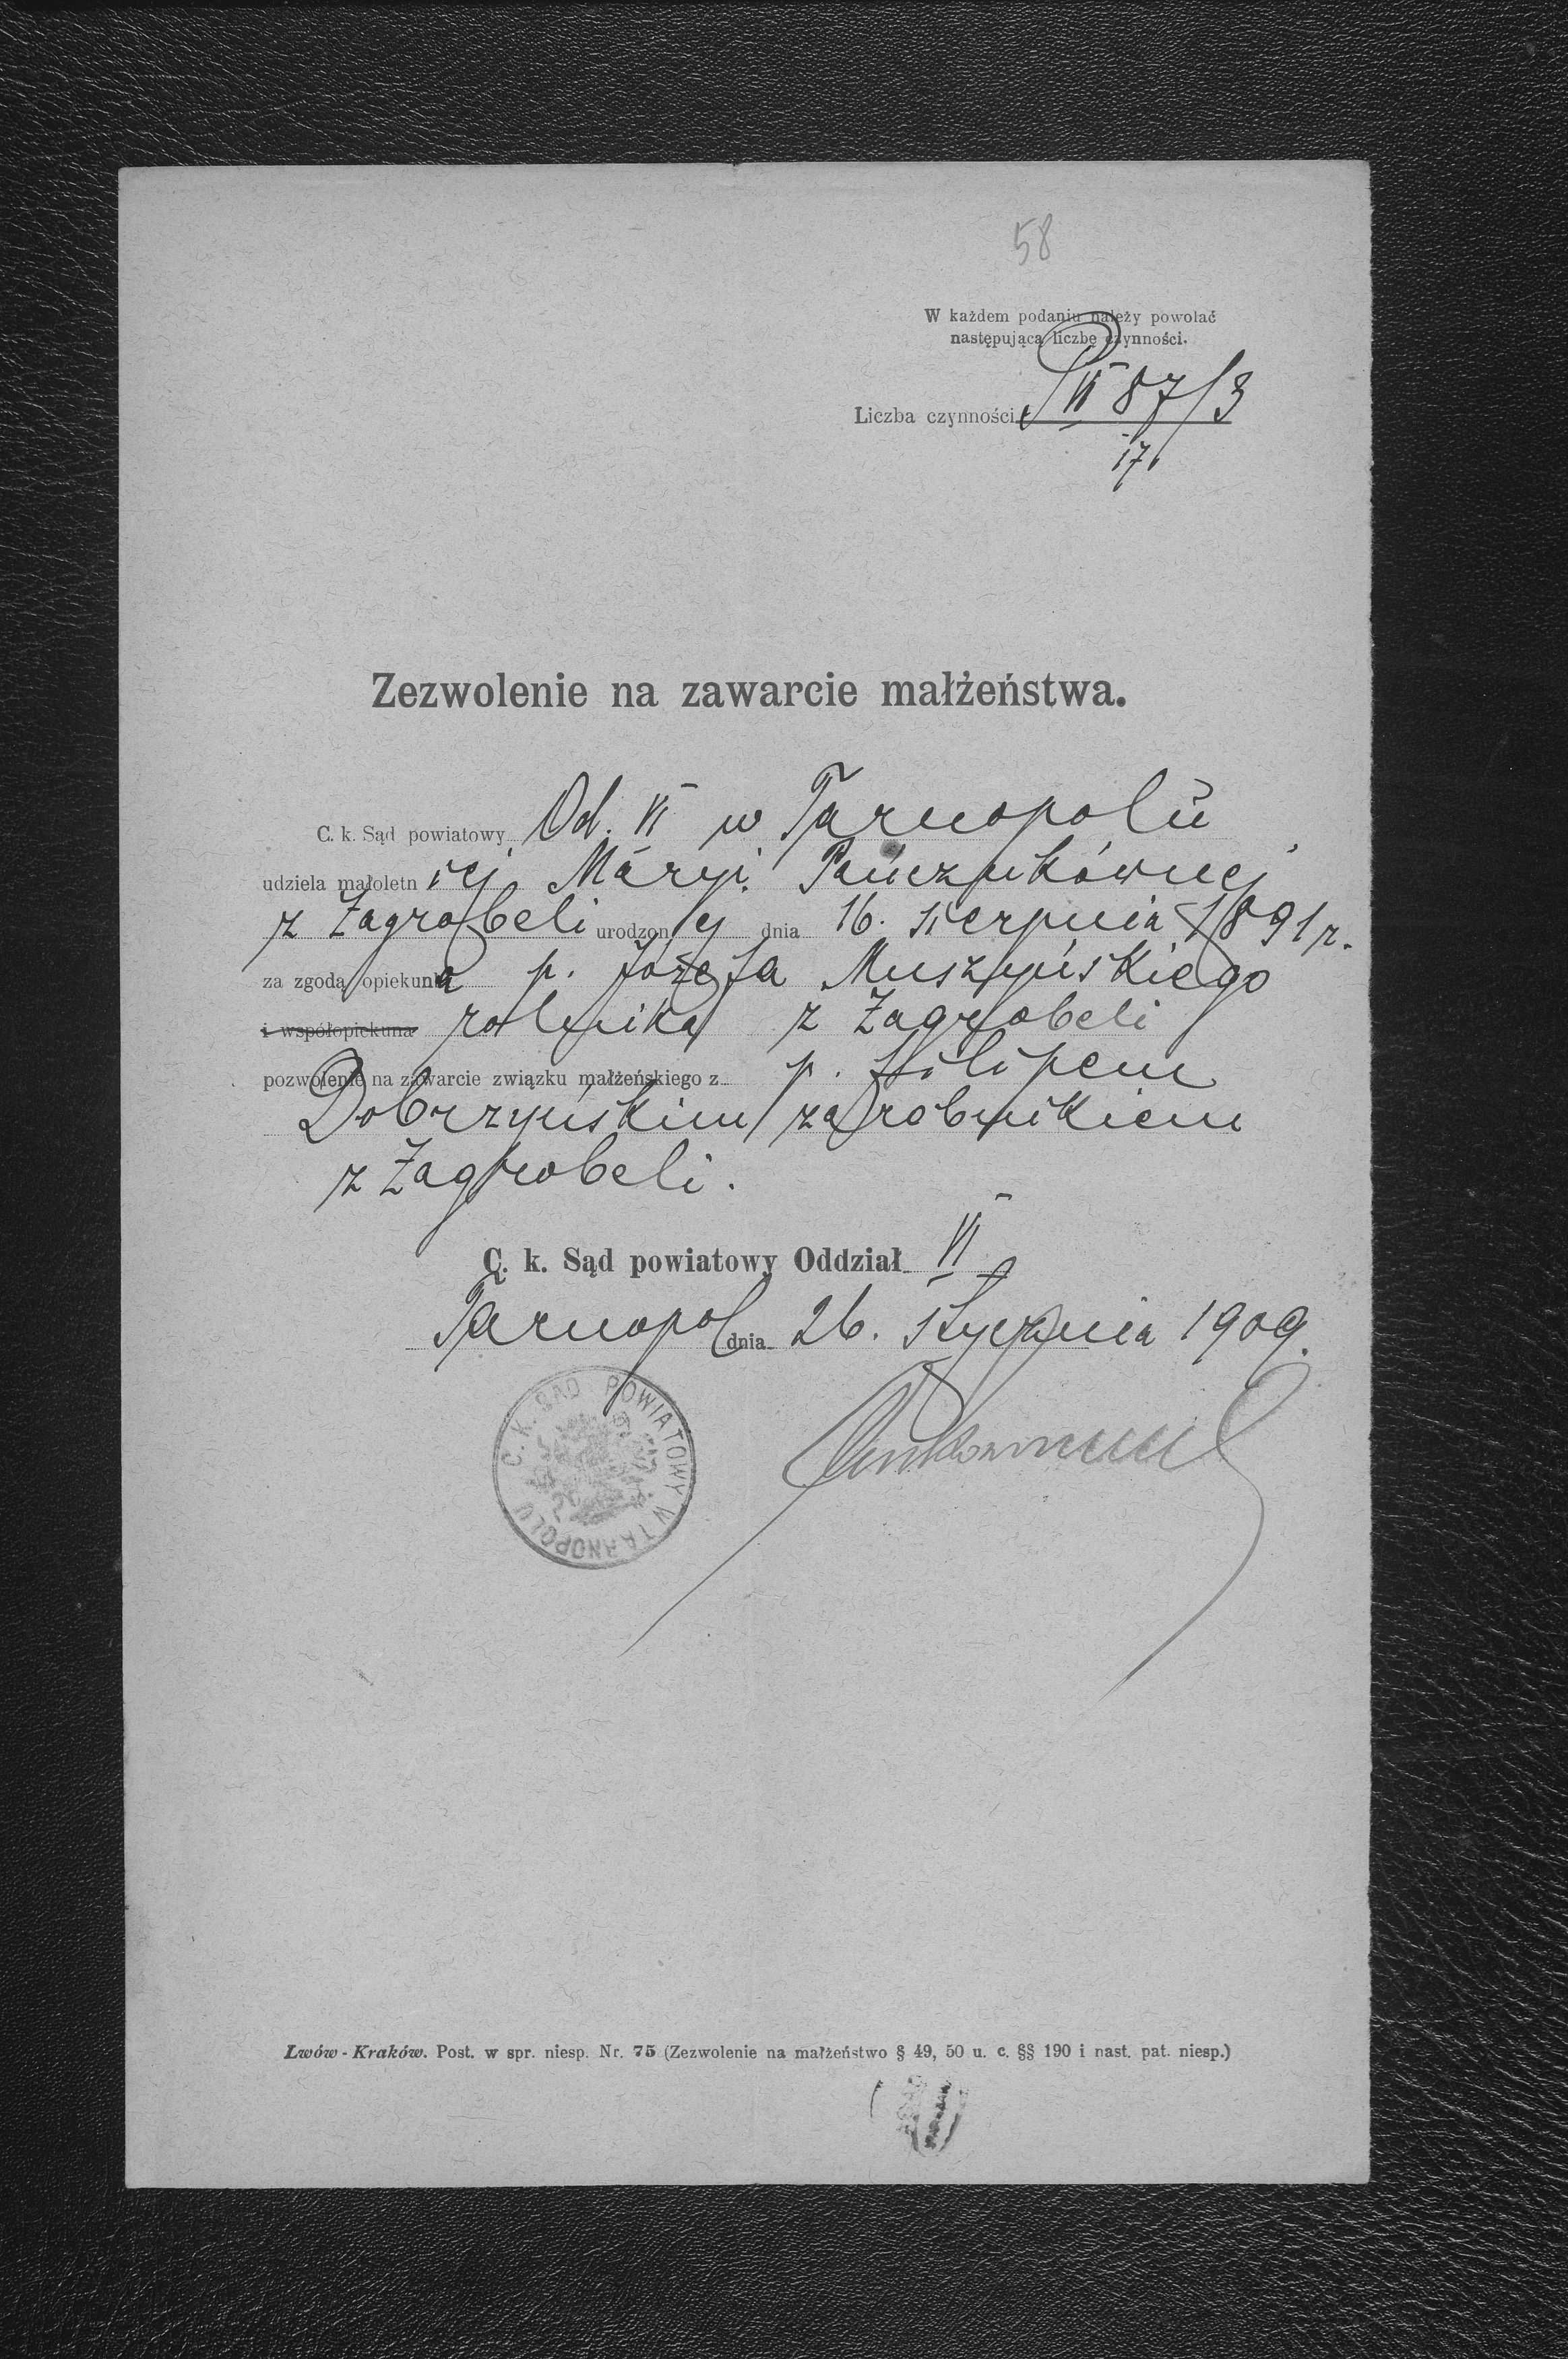 58
W każdem podaniu należy powołać
następującą liczbę czynności.
Liczba czynności P VI 87/3
17
Zezwolenie na zawarcie małżeństwa.
C. k. Sąd powiatowy Od. VI w Tarnopolu
udziela małoletniej Maryi Pańczukównej
z Zagrobeli urodzonej dnia 16. sierpnia 1891 r.
za zgodą opiekuna p. Józefa Muszyńskiego
i współopiekuna rolnika z Zagrobeli
pozwolenie na zawarcie związku małżeńskiego z p. Filipem
Dobrzyńskim zarobnikiem
z Zagrobeli.
C. k. Sąd powiatowy Oddział VI
Tarnopol dnia 26. stycznia 1909.
C. K. SĄD POWIATOWY W TARNOPOLU
Lwów - Kraków. Post. w spr. niesp. Nr. 75 (Zezwolenie na małżeństwo § 49, 50 u. c. §§ 190 i nast. pat. niesp.)